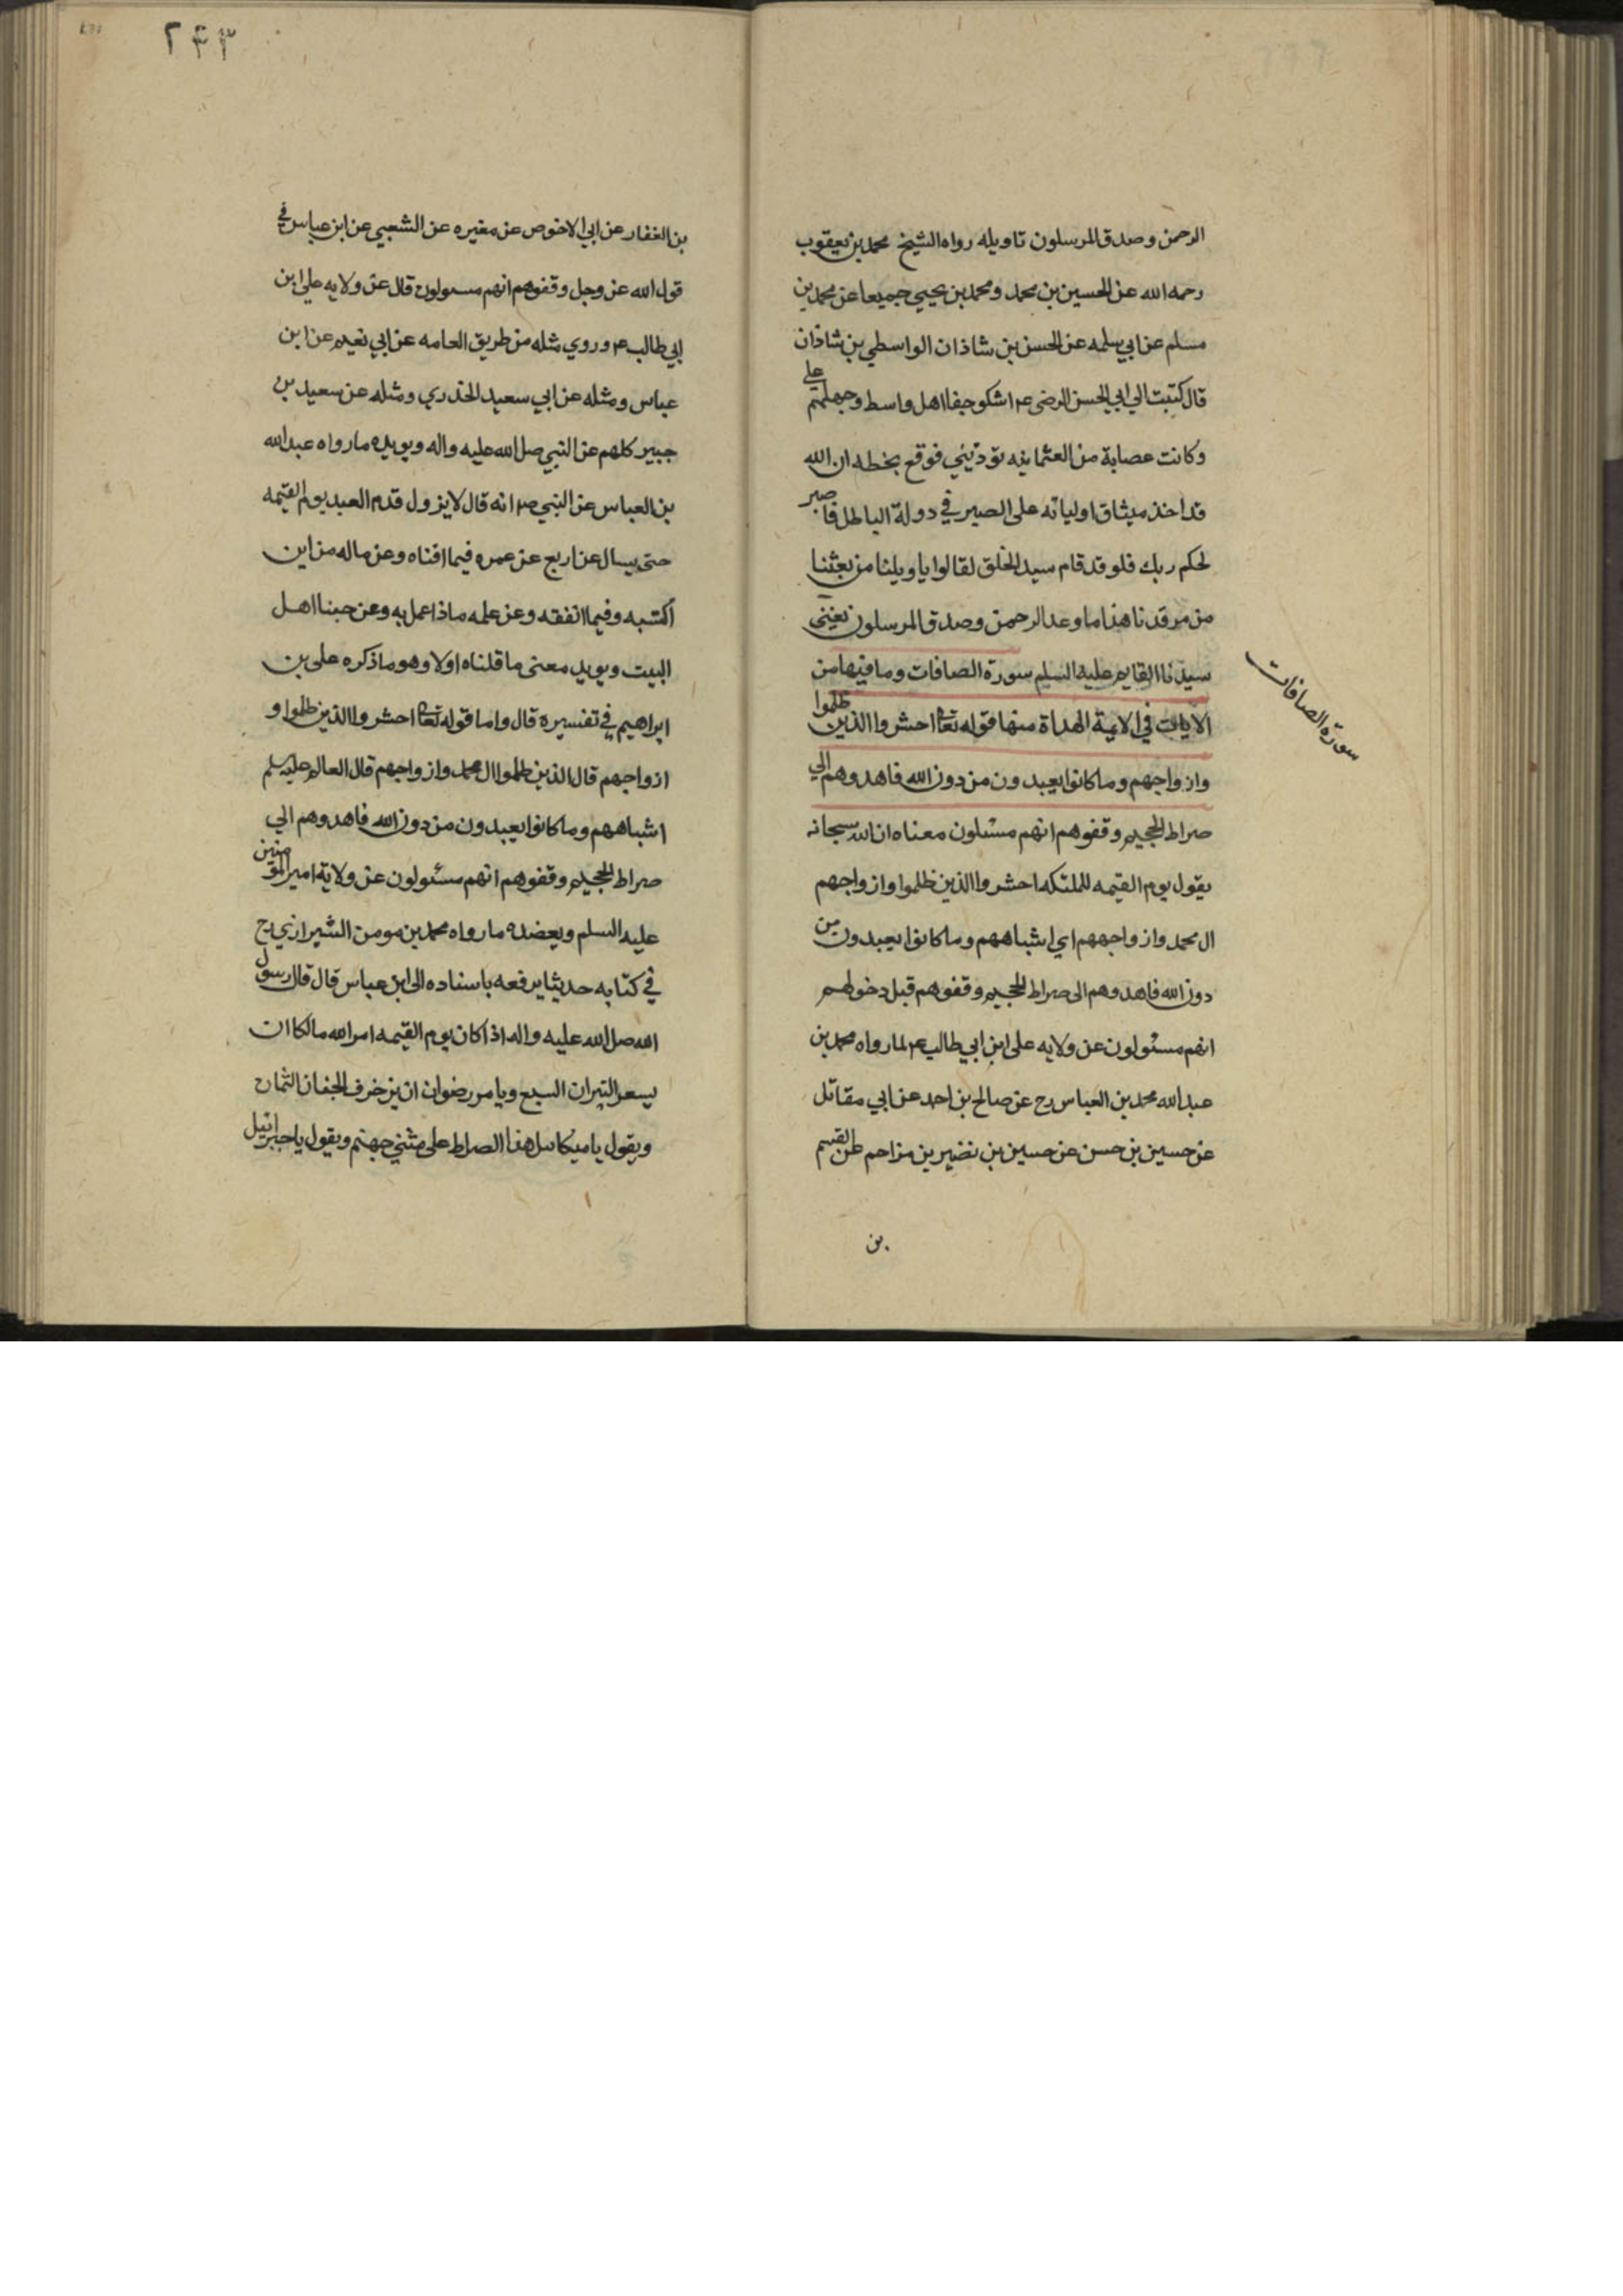 الرحمن وصدق المرسلون تاويله رواه الشيخ محمد بن يعقوب
رحمه الله عن الحسين بن محمد ومحمد بن يحيي جميعا عن محمد بن
مسلم عن ابي سلمه عن الحسن بن شاذان الواسطي بن شاذان
قال كتبت الي ابي الحسن الرضي ع اشكو جفا اهل واسط وجهلهم علي
وكانت عصابة من العثمانيه توذيني فوقع بخطه ان الله
قد اخذ ميثاق اوليائه على الصبر في دولة الباطل فاصبر
لحكم ربك فلو قد قام سيد الخلق لقالوا يا ويلنا من بعثنا
من مرقدنا هذا ما وعد الرحمن وصدق المرسلون نعني
سيدنا القايم عليه السلم سورة الصافات وما فيها من
سورة الصافات
الايات في الايمة الهداة منها قوله تعا احشروا الذين ظلموا
وازواجهم وما كانوا يعبدون من دون الله فاهدوهم الي
صراط الجحيم وقفوهم انهم مسئلون معناه ان الله سبحانه
يقول يوم القيمه للملئكه احشروا الذين ظلموا وازواجهم
ال محمد وازواجهم اي اشباههم وما كانوا يعبدون من
دون الله فاهدوهم الى صراط الجحيم وقفوهم قبل دخولهم
انهم مسئولون عن ولايه على ابن ابي طالب ع لما رواه محمد بن
عبد الله محمد بن العباس رح عن صالح بن احمد عن ابي مقاتل
عن حسين بن حسن عن حسين بن نضير بن مزاحم عن القسم
بن
٢٣٣
بن الغفار عن ابي الاخوص عن مغيره عن الشعبي عن ابن عباس في
قول الله عز وجل وقفوهم انهم مسولون قال عن ولايه علي ابن
ابي طالب ع وروي مثله من طريق العامه عن ابي نعيم عن ابن
عباس ومثله عن ابي سعيد الخدري ومثله عن سعيد بن
جبير كلهم عن النبي صل الله عليه واله ويويده ما رواه عبد الله
بن العباس عن النبي ص انه قال لا يزول قدم العبد يوم القيمه
حتى يسال عن اربع عن عمره فيما افناه وعن ماله من اين
اكتسبه وفيما انفقه وعن علمه ماذا عمل به وعن حبنا اهل
البيت ويويد معنى ما قلناه اولا وهو ما ذكره على بن
ابراهيم في تفسيره قال واما قوله تعا احشروا الذين ظلموا و
ازواجهم قال الذين ظلموا ال محمد وازواجهم قال العالم عليه سلم
اشباههم وما كانوا يعبدون من دون الله فاهدوهم الي
صراط الجحيم وقفوهم انهم مسئولون عن ولاية امير المومنين
عليه السلم ويعضده ما رواه محمد بن مومن الشيرازي رح
في كتابه حديثا يرفعه باسناده الى ابن عباس قال قال رسول
الله صل الله عليه واله اذا كان يوم القيمه امر الله مالكا ان
يسعر النيران السبع ويامر رضوان ان يزخرف الجنان الثمان
ويقول يا ميكائيل هذا الصراط على مثني جهنم ويقول يا جبرائيل